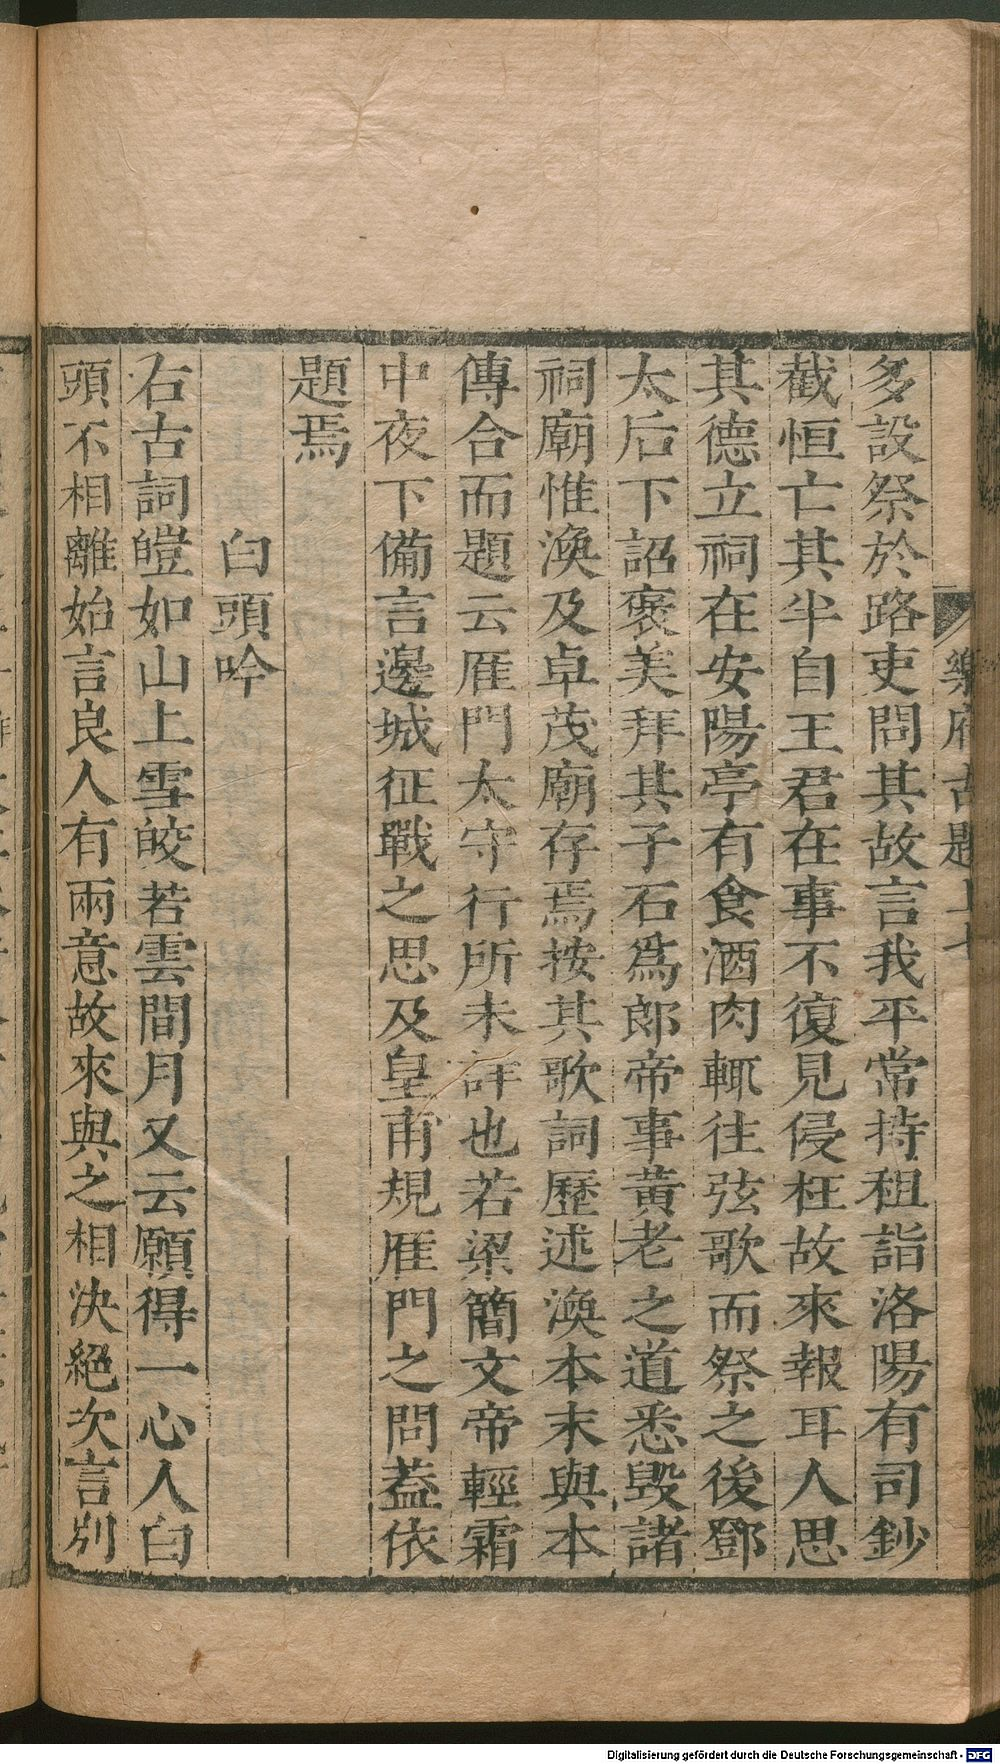 樂府古題上
多設祭於路吏問其故言我平常持租詣洛陽有司鈔
截恒亡其半自王君在事不復見侵枉故來報耳人思
其德立祠在安陽亭有食酒肉輒往弦歌而祭之後鄧
太后下詔褒美拜其子石爲郎帝事黃老之道悉毀諸
祠廟惟渙及卓茂廟存焉按其歌詞歷述渙本末與本
傳合而題云雁門太守行所未詳也若梁簡文帝輕霜
中夜下備言邊城征戰之思及皇甫規雁門之問蓋依
題焉
白頭吟
右古詞皚如山上雪皎若雲間月又云願得一心人白
頭不相離始言良人有兩意故來與之相決絕次言別
Digitalisierung gefördert durch die Deutsche Forschungsgemeinschaft - DFG